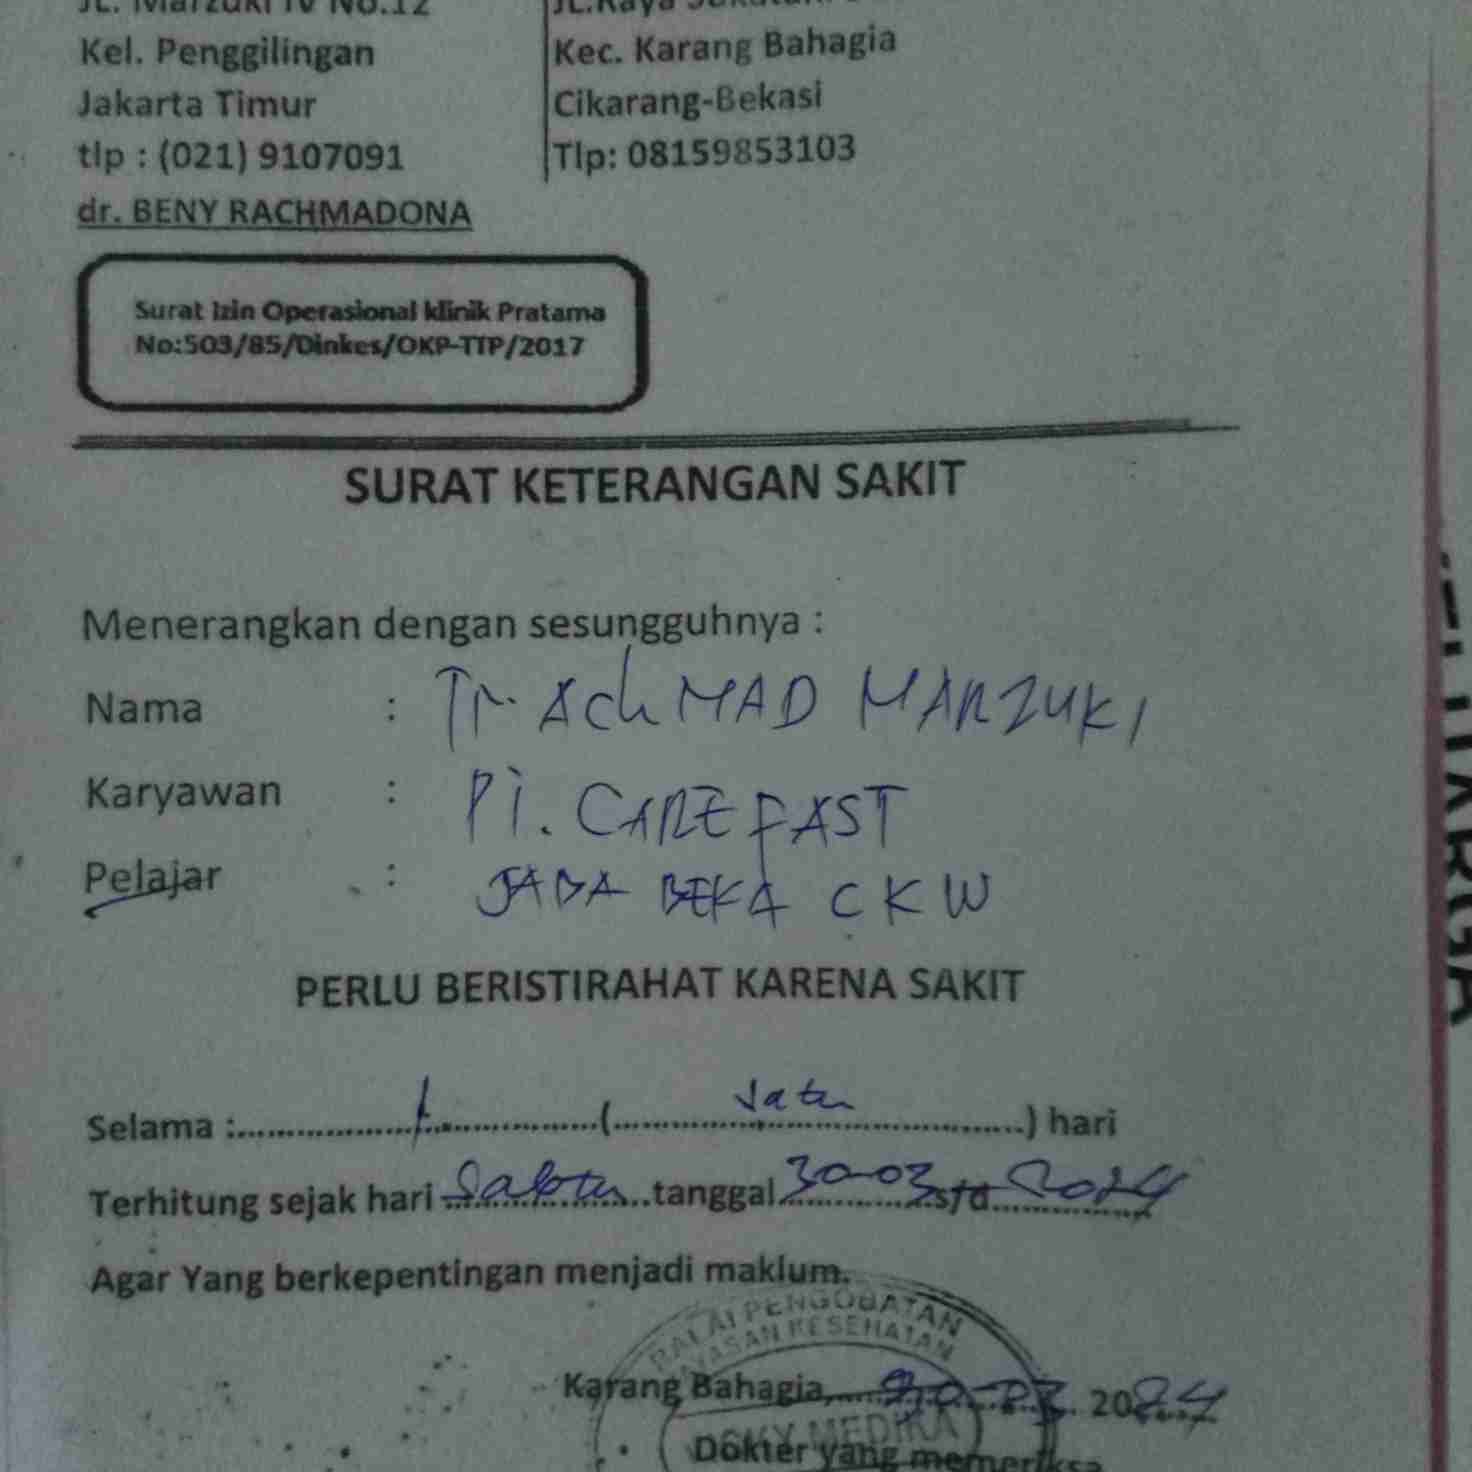 JL. Marzuki IV No.12
Kel. Penggilingan
Jakarta Timur
tlp : (021) 9107091
JL.Raya
Kec. Karang Bahagia
Cikarang-Bekasi
Tlp: 08159853103
dr. BENY RACHMADONA
Surat Izin Operasional klinik Pratama
No:503/85/Dinkes/OKP-TTP/2017
SURAT KETERANGAN SAKIT
Menerangkan dengan sesungguhnya :
Nama : Tn. AchMAD MARZUKI
Karyawan : PT. CAREFAST
Pelajar : JABA BEKA CKW
PERLU BERISTIRAHAT KARENA SAKIT
Selama :......1......(......satu......) hari
Terhitung sejak hari Sabtu tanggal 30-03 s/d 2024
Agar Yang berkepentingan menjadi maklum.
BALAI PENGOBATAN
YAYASAN KESEHATAN
Karang Bahagia, 30-03 2024
MEDIKA
Dokter yang memeriksa